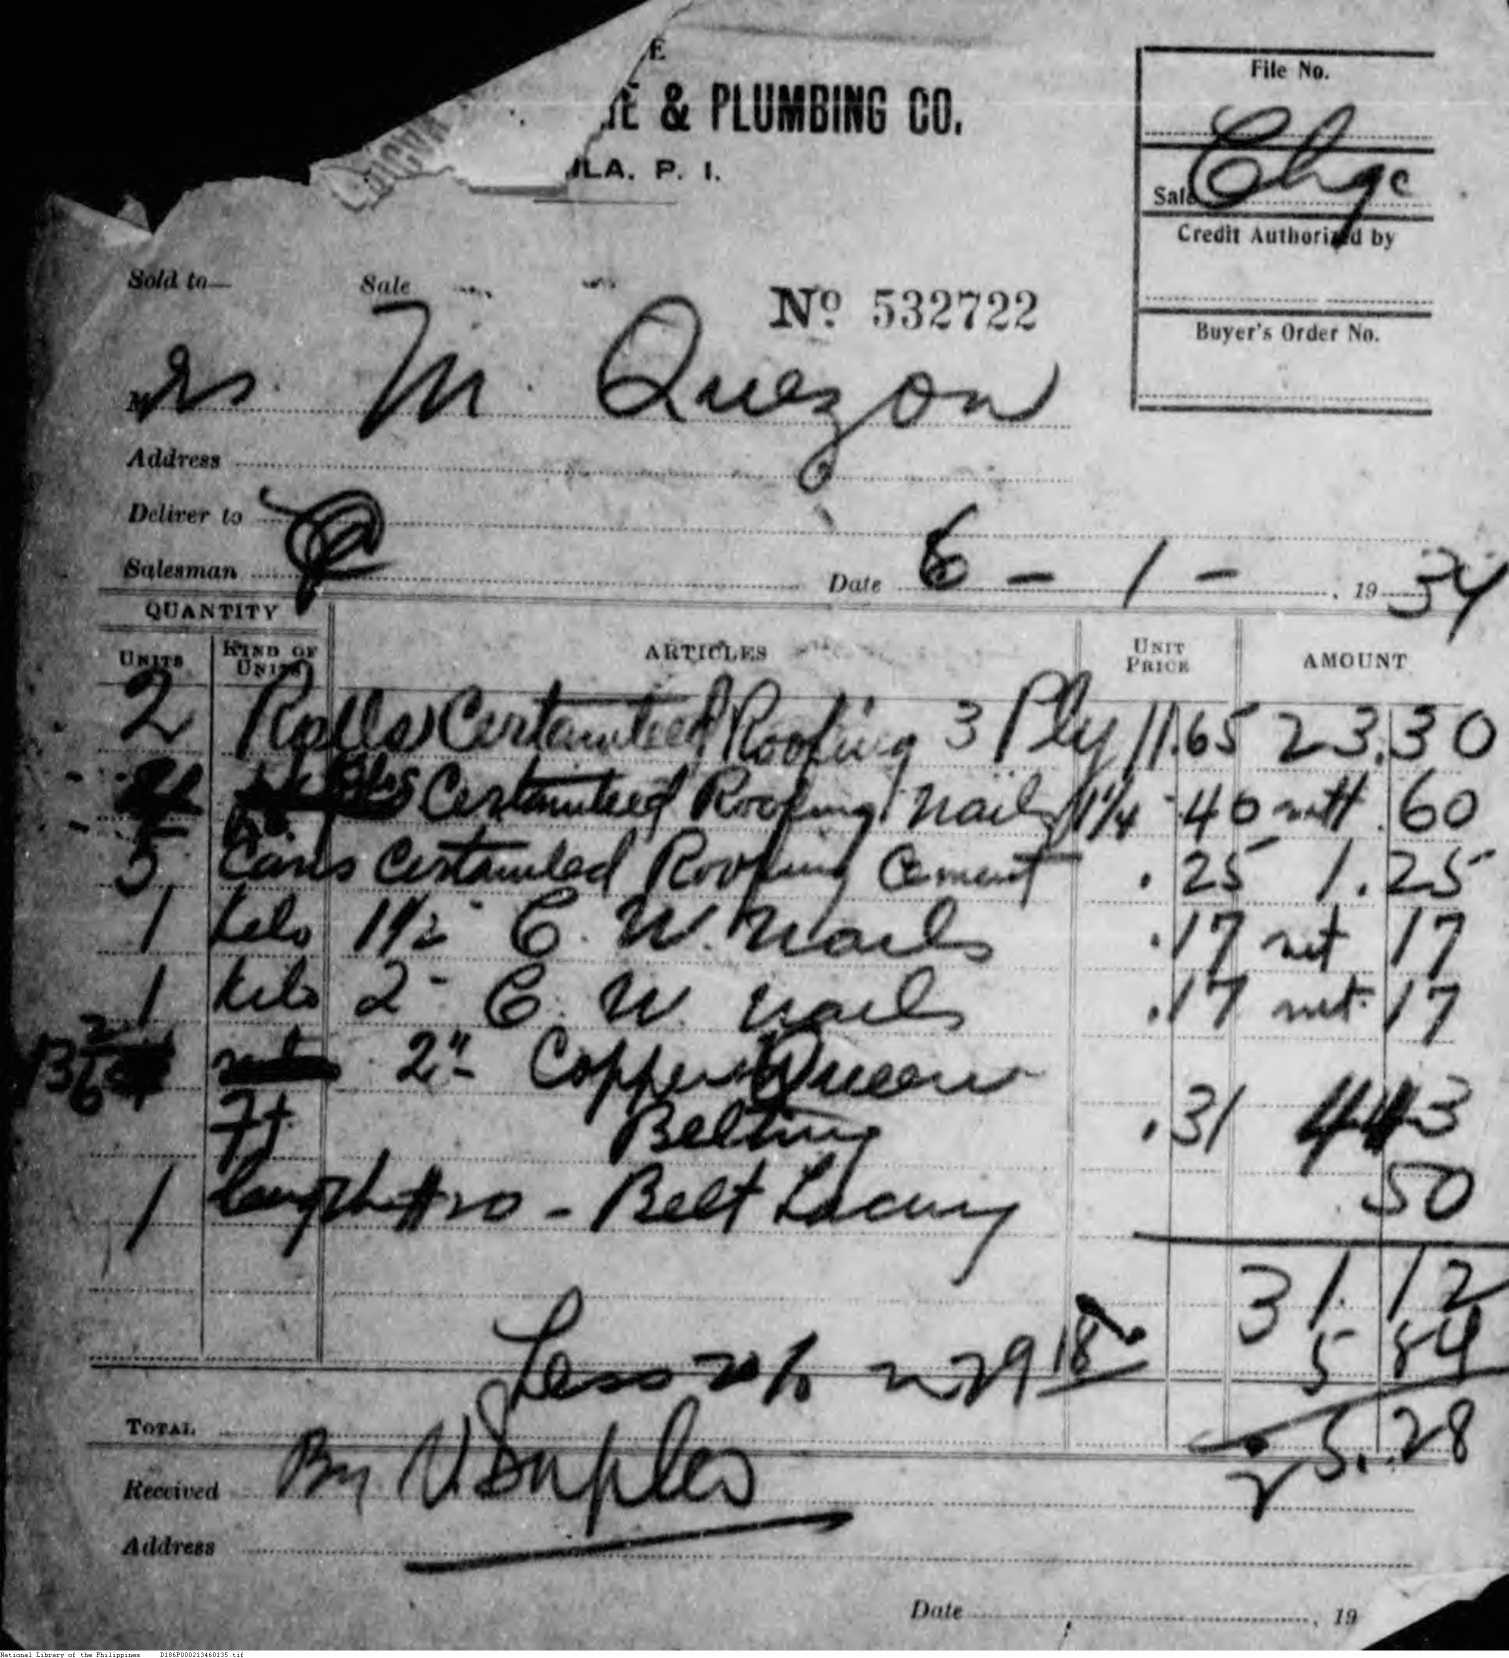 E
E & PLUMBING CO.
ILA, P. I.
File No.
Chge
Sale
Credit Authorized by
Buyer's Order No.
Sold to— Sale
Nº 532722
Mrs. M. Quezon
Address
Deliver to
Salesman Date 6 - 1 - , 19 34
QUANTITY
UNITS KIND OF UNITS ARTICLES UNIT PRICE AMOUNT
2 Rolls Certainteed Roofing 3 Ply 11.65 23.30
Certainteed Roofing Nails 1 1/4 .40 net .60
5 Cans Certainteed Roofing Cement .25 1.25
1 kilo 1 1/2" C. W. Nails .17 net 17
1 kilo 2" C. W. Nails .17 net 17
13 2" Copper Queen
Ft. Belting .31 4 43
1 length #20 - Belt Lacing .50
31.12
Less 20% 29 18 5 84
TOTAL 25.28
Received By
Address
Date , 19
National Library of the Philippines D186P000213460135.tif